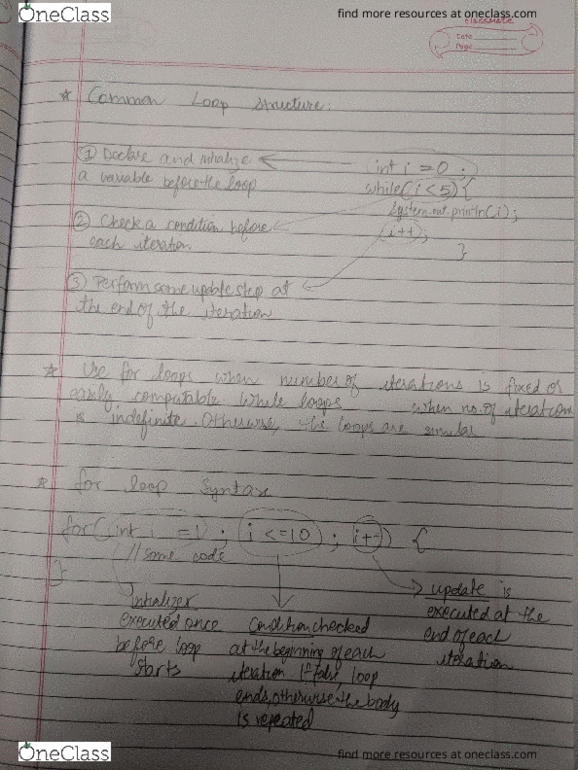 OneClass
find more resources at oneclass.com
classmate
Date
Page
* Common Loop Structure:
① Declare and initialize
a variable before the loop
② Check a condition before
each iteration
③ Perform some update step at
the end of the iteration
int i = 0 ;
while( i < 5) {
System.out.println(i);
i++;
}
* Use for loops when number of iterations is fixed or
easily computable While loops when no. of iteration
is indefinite. Otherwise, the loops are similar
* for loop Syntax
for( int i = 1 ; i <= 10 ; i++ ) {
// some code
}
Initializer
executed once
before loop
starts
Condition checked
at the beginning of each
iteration If false, loop
ends, otherwise the body
is repeated
update is
executed at the
end of each
iteration
OneClass
find more resources at oneclass.com